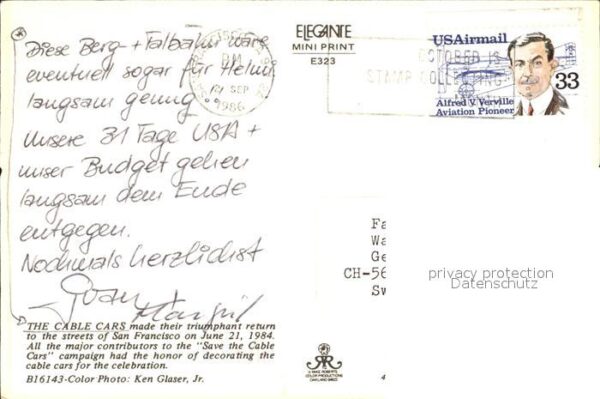 Diese Berg- + Talbahn wäre
eventuell sogar für Helmi
langsam genug
Unsere 31 Tage USA +
unser Budget gehen
langsam dem Ende
entgegen.
Nochmals herzlichst
THE CABLE CARS made their triumphant return
to the streets of San Francisco on June 21, 1984.
All the major contributors to the "Save the Cable
Cars" campaign had the honor of decorating the
cable cars for the celebration.
B16143-Color Photo: Ken Glaser, Jr.
ELEGANTE
MINI PRINT
E323
PM
SEP
1986
OCTOBER IS
STAMP COLLECTING
USAirmail
33
Alfred V. Verville
Aviation Pioneer
Fa
Wa
Ge
CH-56
Sw
privacy protection
Datenschutz
© MIKE ROBERTS
COLOR PRODUCTIONS
OAKLAND 94602
4